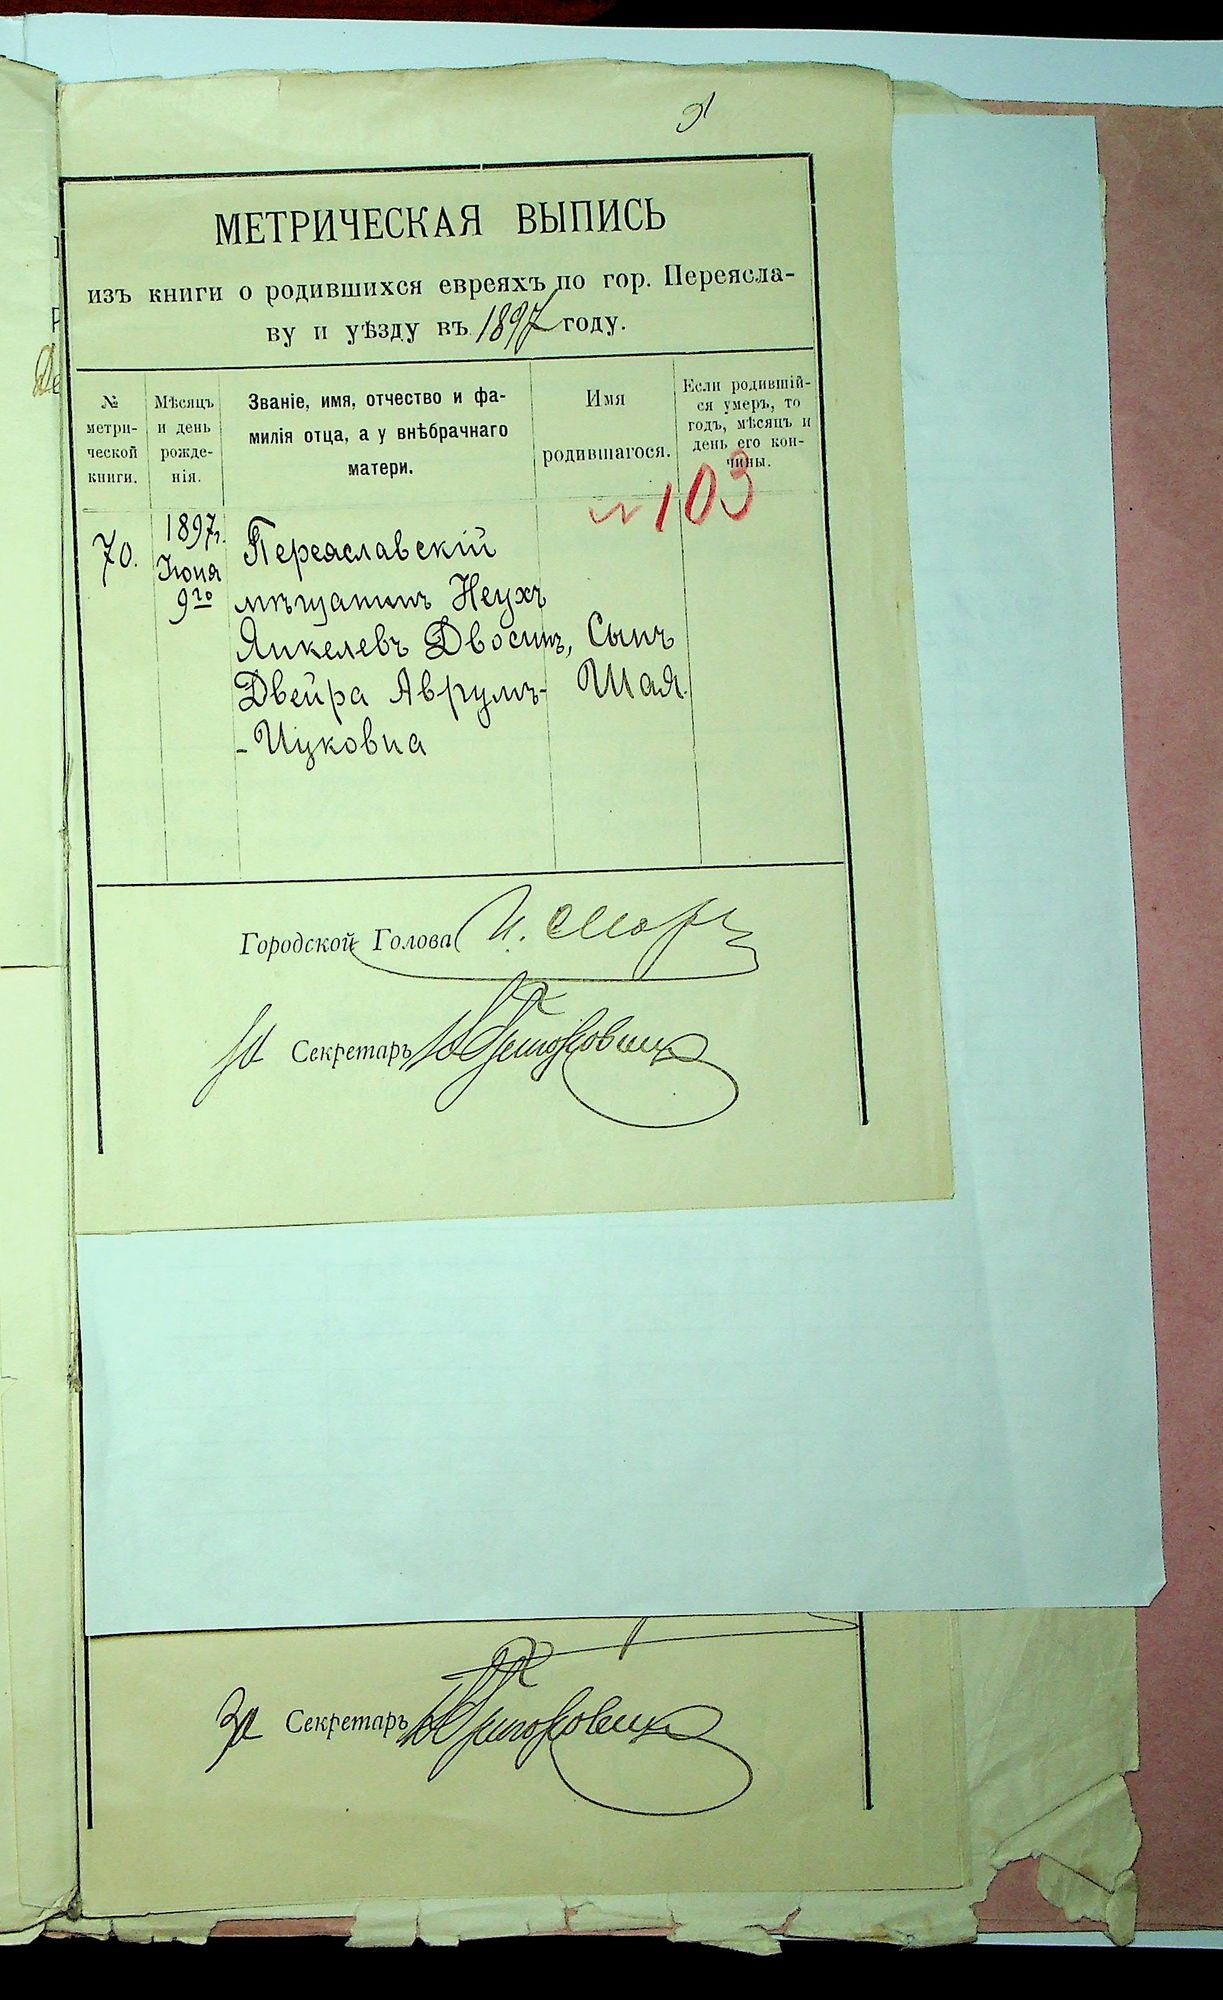 МЕТРИЧЕСКАЯ ВЫПИСЬ
изъ книги о родившихся евреяхъ по гор. Переясла-
ву и уѣзду въ 1897 году.
№
метри-
ческой
книги.
Мѣсяцъ
и день
рожде-
нія.
Званіе, имя, отчество и фа-
милія отца, а у внѣбрачнаго
матери.
Имя
родившагося.
Если родившій-
ся умеръ, то
годъ, мѣсяцъ и
день его кон-
чины.
№ 103
70.
1897г.
Іюня
9го
Переяславскій
мѣщанинъ Неухъ
Янкелевъ Двосинъ,
Двейра Аврумъ-
-Ицковна
Сынъ
Шая.
Городской Голова
За Секретарь
За Секретарь